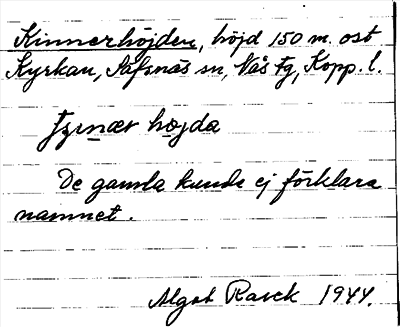 Kinnerhöjden, höjd 150 m. ost
Kyrkan, Säfsnäs sn, Nås tg, Kopp. l.
höjda
De gamla kunde ej förklara
namnet.
Algot Rasck 1944.